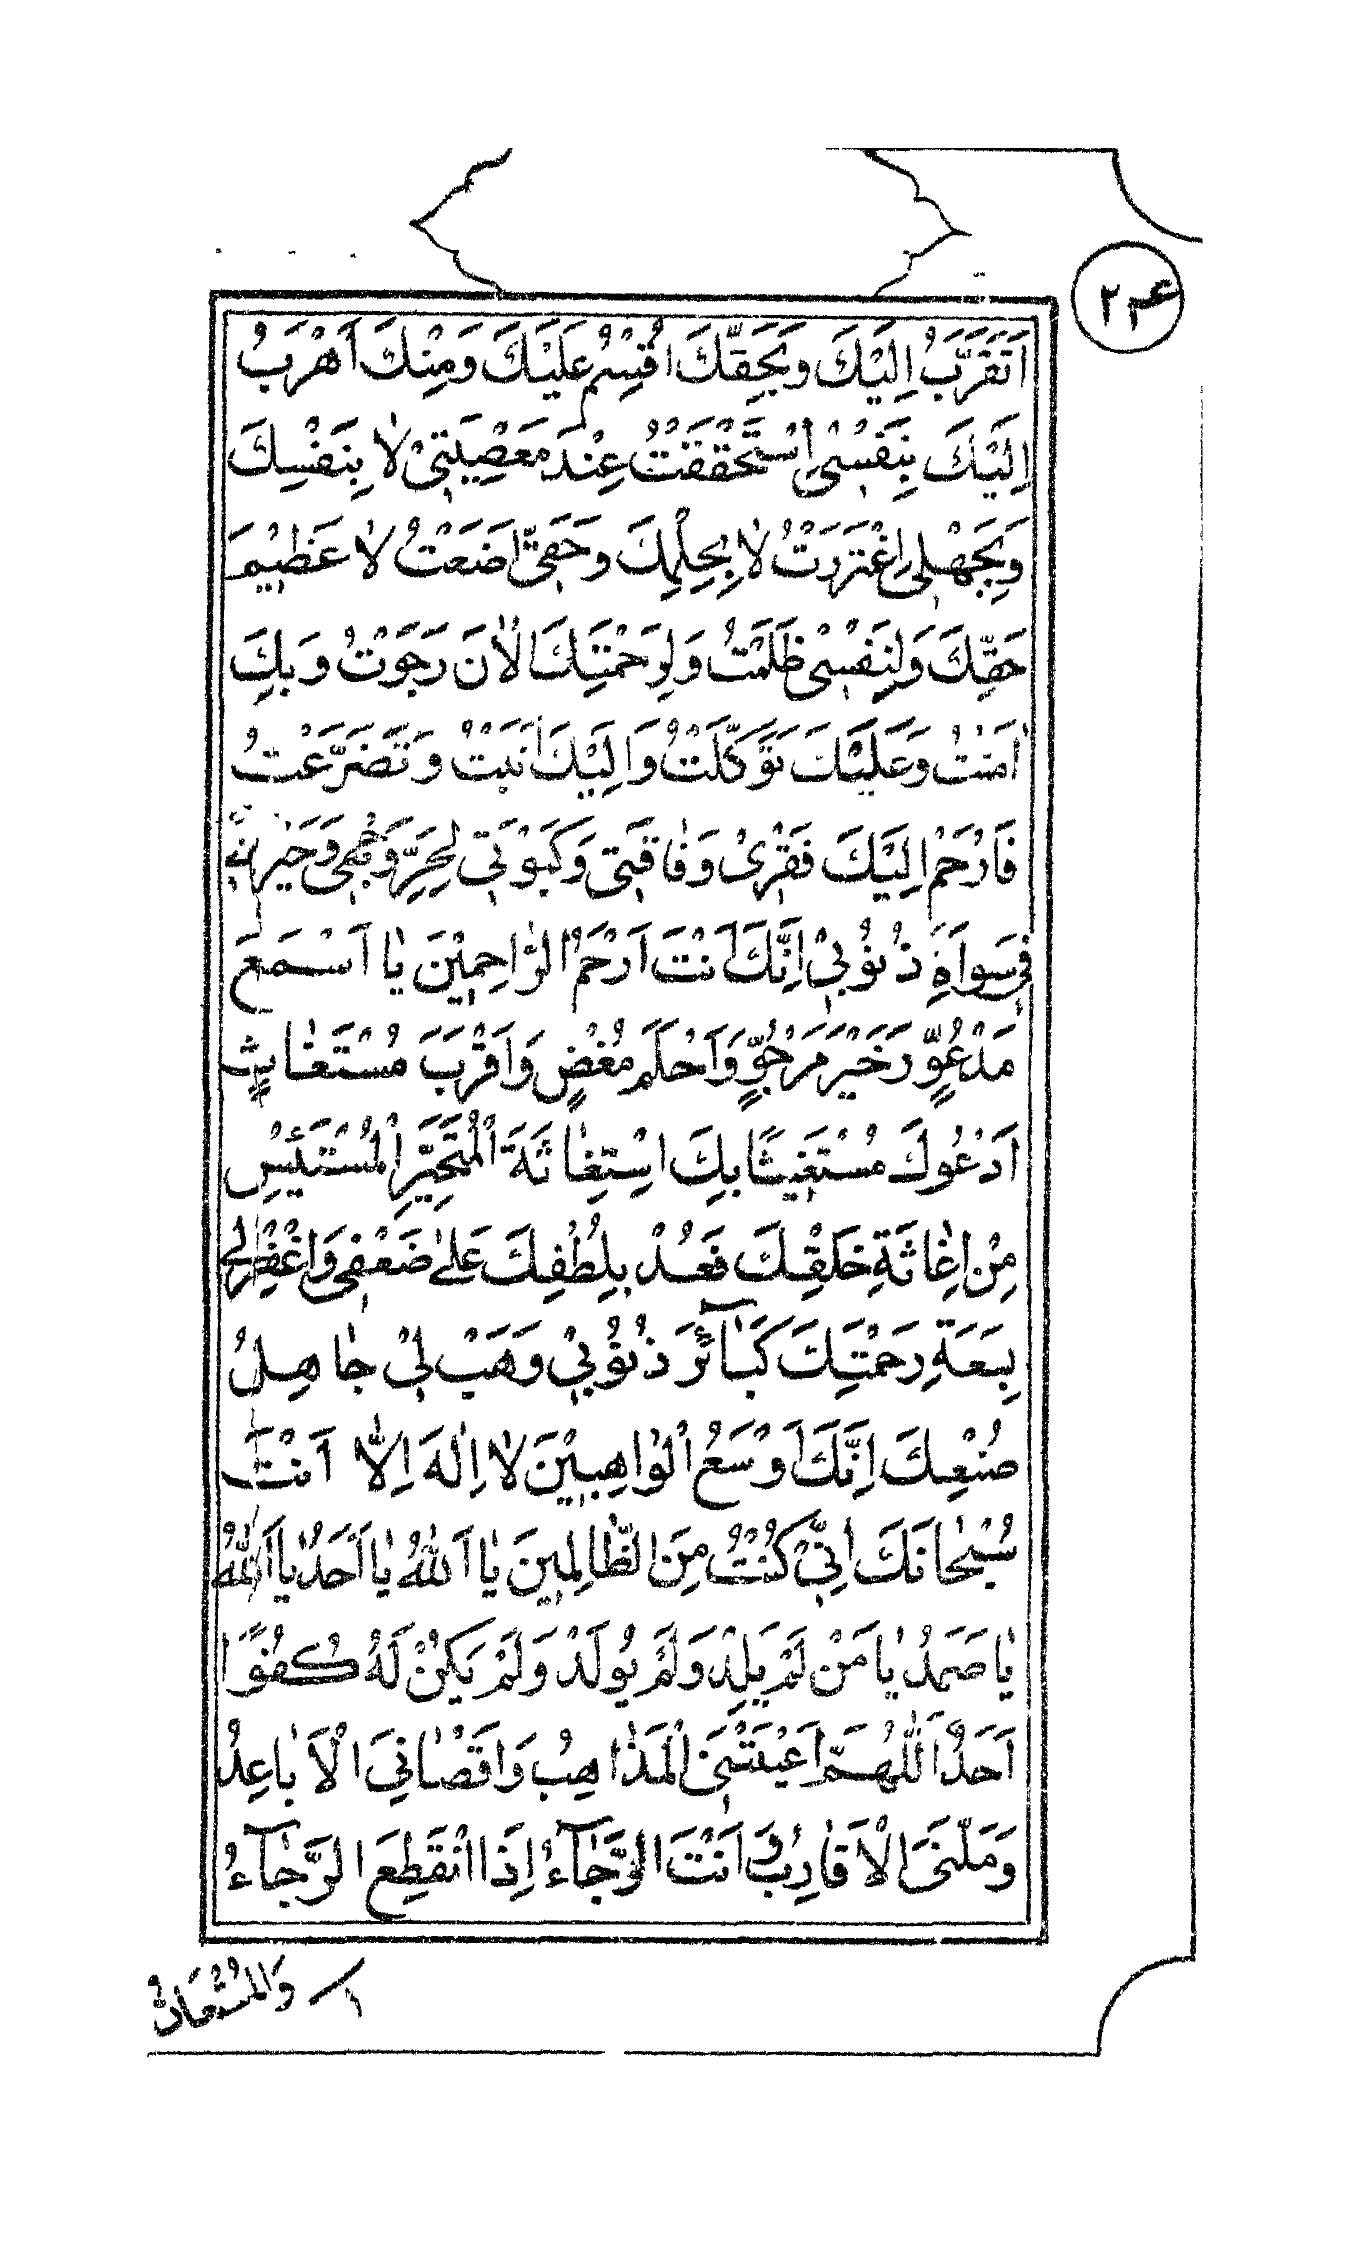 ٢٣٤
اَتَقَرَّبُ اِلَيْكَ وَبِحَقِّكَ اُقْسِمُ عَلَيْكَ وَمِنْكَ اَهْرَبُ
اِلَيْكَ بِنَفْسِىْ اِسْتَحْقَقْتُ عِنْدَ مَعْصِيَتِىْ لَا بِنَفْسِكَ
وَبِجَهْلِى اغْتَرَرْتُ لَا بِحِلْمِكَ وَحَقِّىْ اَضَعْتُ لَا عَظِيْمَ
حَقِّكَ وَلِنَفْسِىْ ظَلَمْتُ وَلِرَحْمَتِكَ الْاٰنَ رَجَوْتُ وَبِكَ
اٰمَنْتُ وَعَلَيْكَ تَوَكَّلْتُ وَاِلَيْكَ اَنَبْتُ وَتَضَرَّعْتُ
فَارْحَمْ اِلَيْكَ فَقْرِىْ وَفَاقَتِى وَكَبْوَتِى لِحَرِّ وَجْهِى وَحَيْرَتِى
فِى سَوْاَةِ ذُنُوْبِىْ اِنَّكَ اَنْتَ اَرْحَمُ الرَّاحِمِيْنَ يٰا اَسْمَعَ
مَدْعُوٍّ وَخَيْرَ مَرْجُوٍّ وَاَحْلَمَ مُغْضٍ وَاَقْرَبَ مُسْتَغَاثٍ
اَدْعُوكَ مُسْتَغِيْثًا بِكَ اسْتِغَاثَةَ الْمُتَحَيِّرِ الْمُسْتَيْئِسِ
مِنْ اِغَاثَةِ خَلْقِكَ فَعُدْ بِلُطْفِكَ عَلىٰ ضَعْفِى وَاغْفِرْ لِى
بِسَعَةِ رَحْمَتِكَ كَبَآئِرَ ذُنُوْبِىْ وَهَبْ لِىْ جٰاهِلُ
صُنْعِكَ اِنَّكَ اَوْسَعُ الْوٰاهِبِيْنَ لَا اِلٰهَ اِلَّا اَنْتَ
سُبْحَانَكَ اِنِّىْ كُنْتُ مِنَ الظَّالِمِينَ يٰا اَللّٰهُ يٰا اَحَدُ يٰا اَللّٰهُ
يٰا صَمَدُ يٰا مَنْ لَمْ يَلِدْ وَلَمْ يُولَدْ وَلَمْ يَكُنْ لَهُ كُفُوًا
اَحَدٌ اَللّٰهُمَّ اَعْيَتْنِىَ الْمَذٰاهِبُ وَاَقْصٰانِىَ الْاَبٰاعِدُ
وَمَلَّنِىَ الْاَقٰارِبُ وَ اَنْتَ الرَّجٰآءُ اِذَا انْقَطَعَ الرَّجٰآءُ
وَالْمُسْتَعَانُ